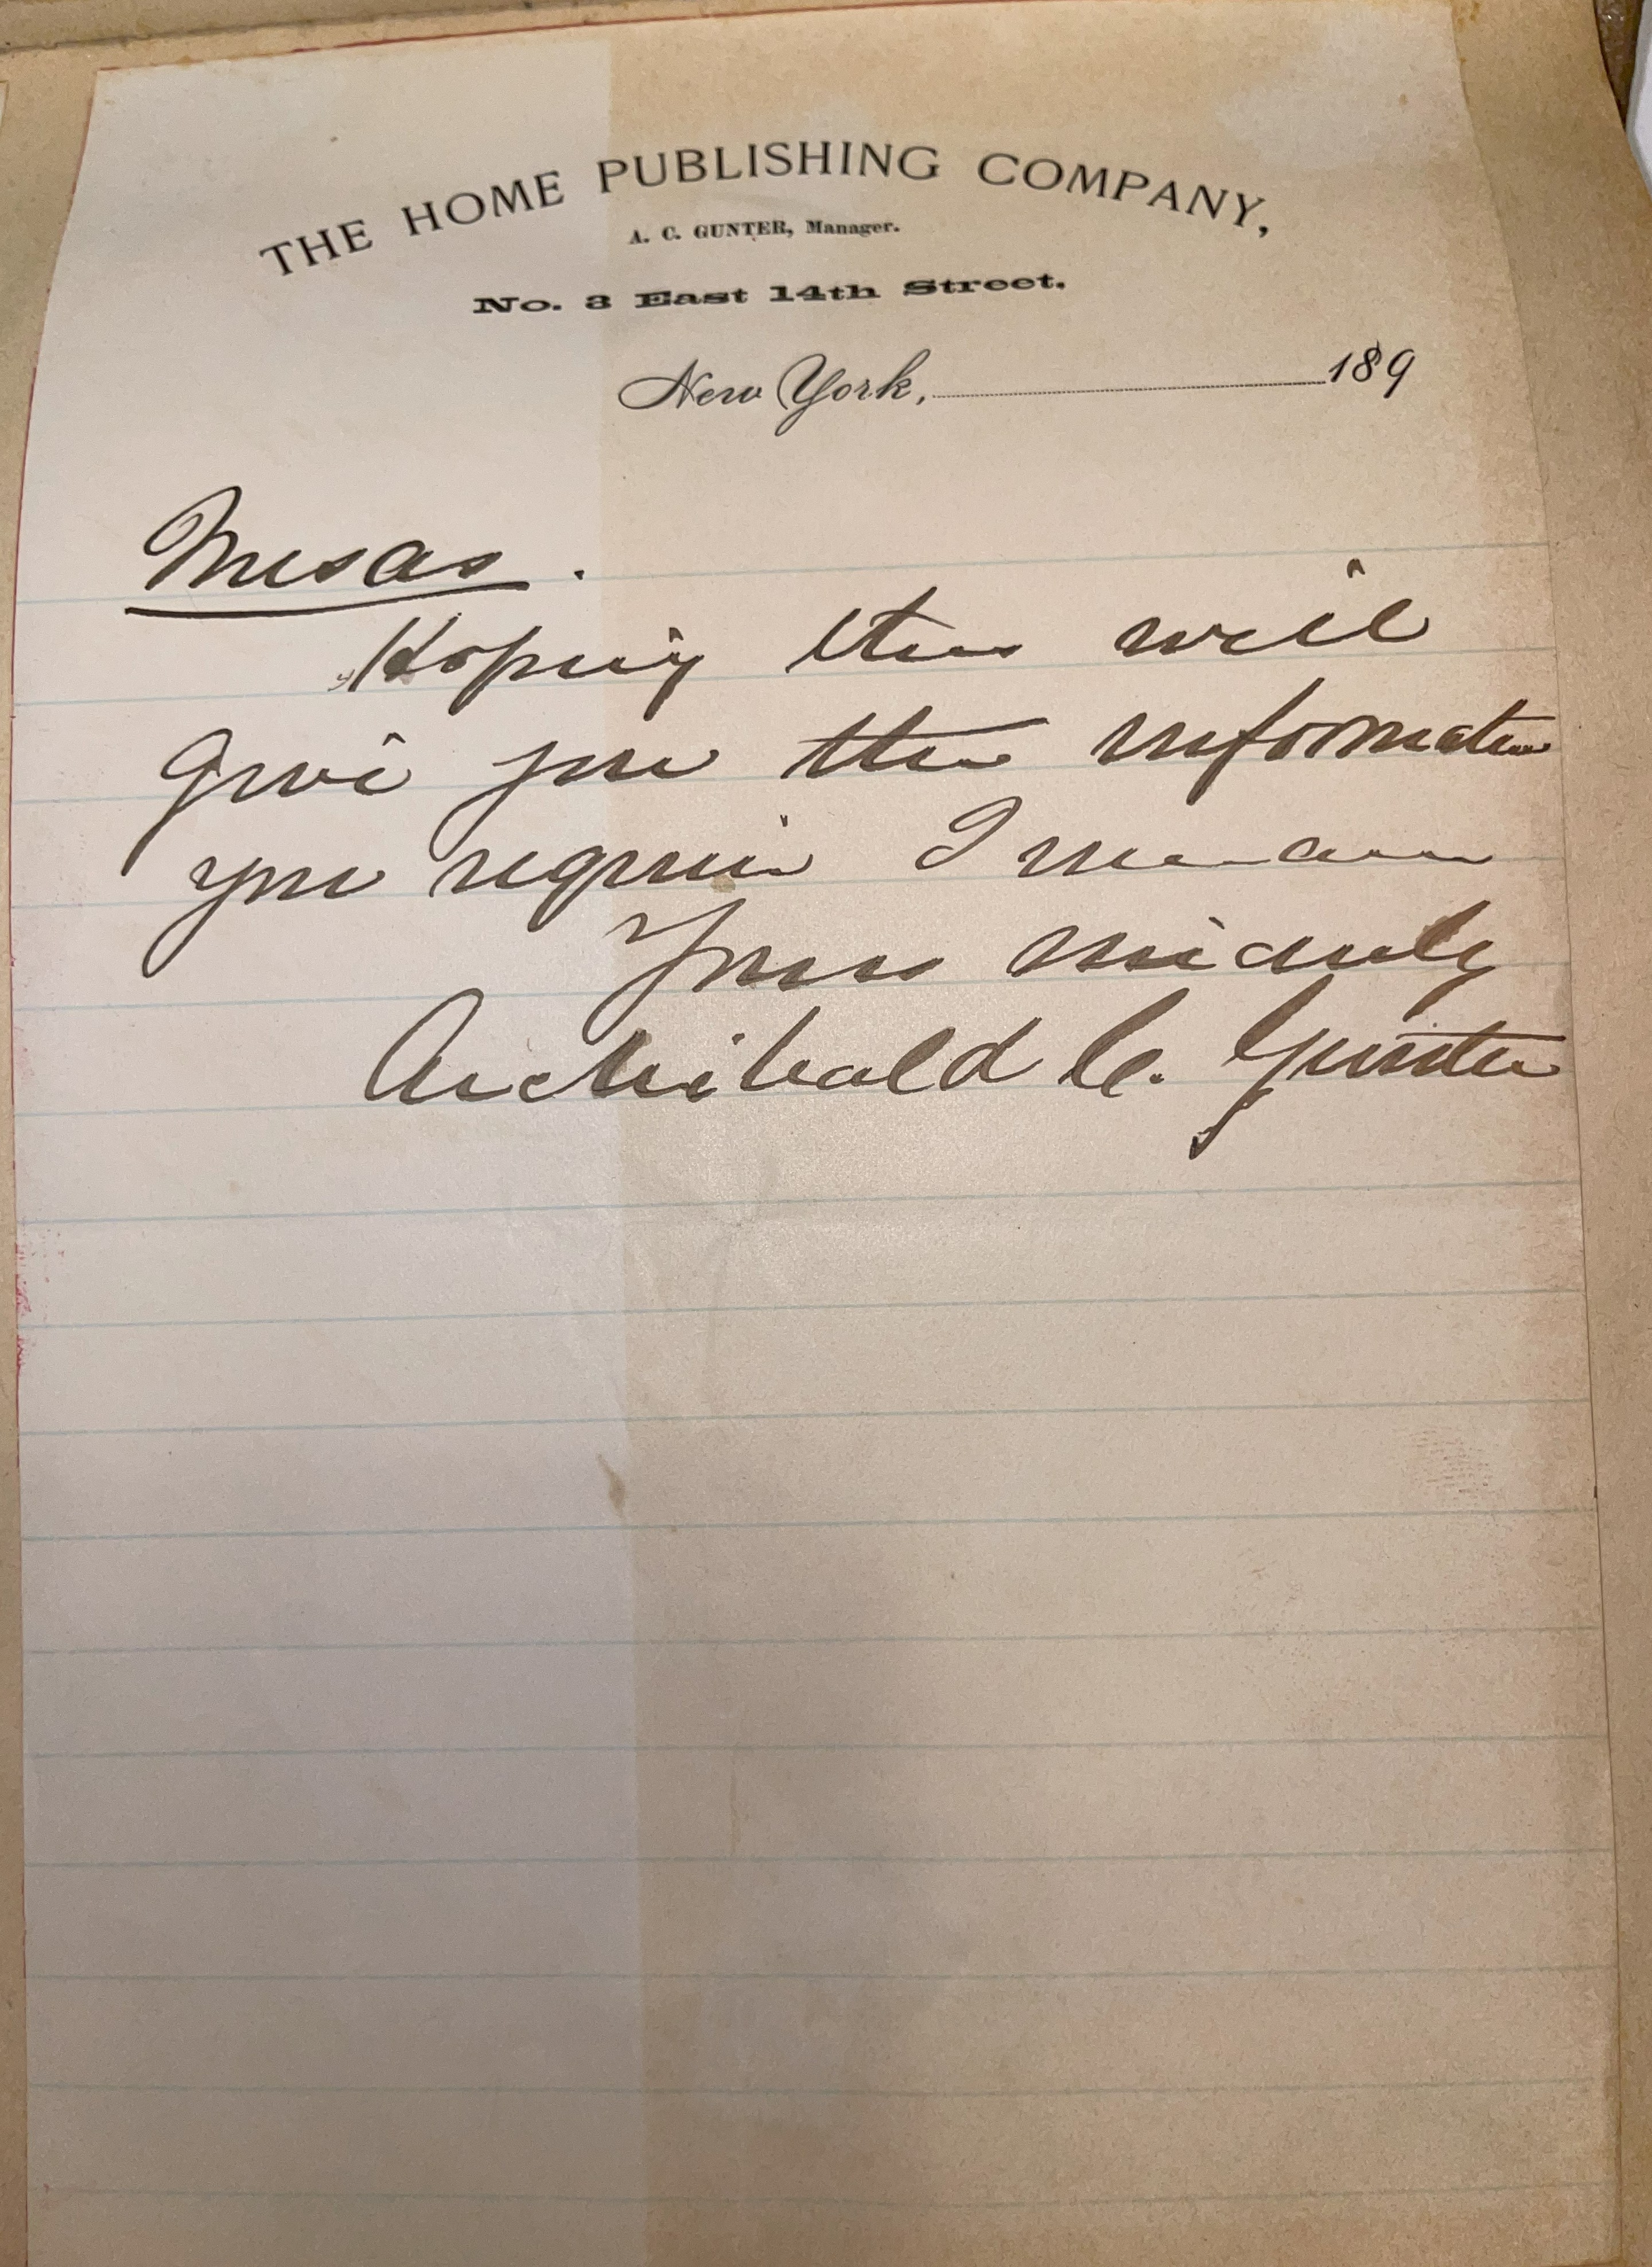 THE HOME PUBLISHING COMPANY,
A. C. GUNTER, Manager.
No. 3 East 14th Street.
New York, 189
Hoping this will
give you the information
you require I remain
Yours sincerely
Archibald C. Gunter